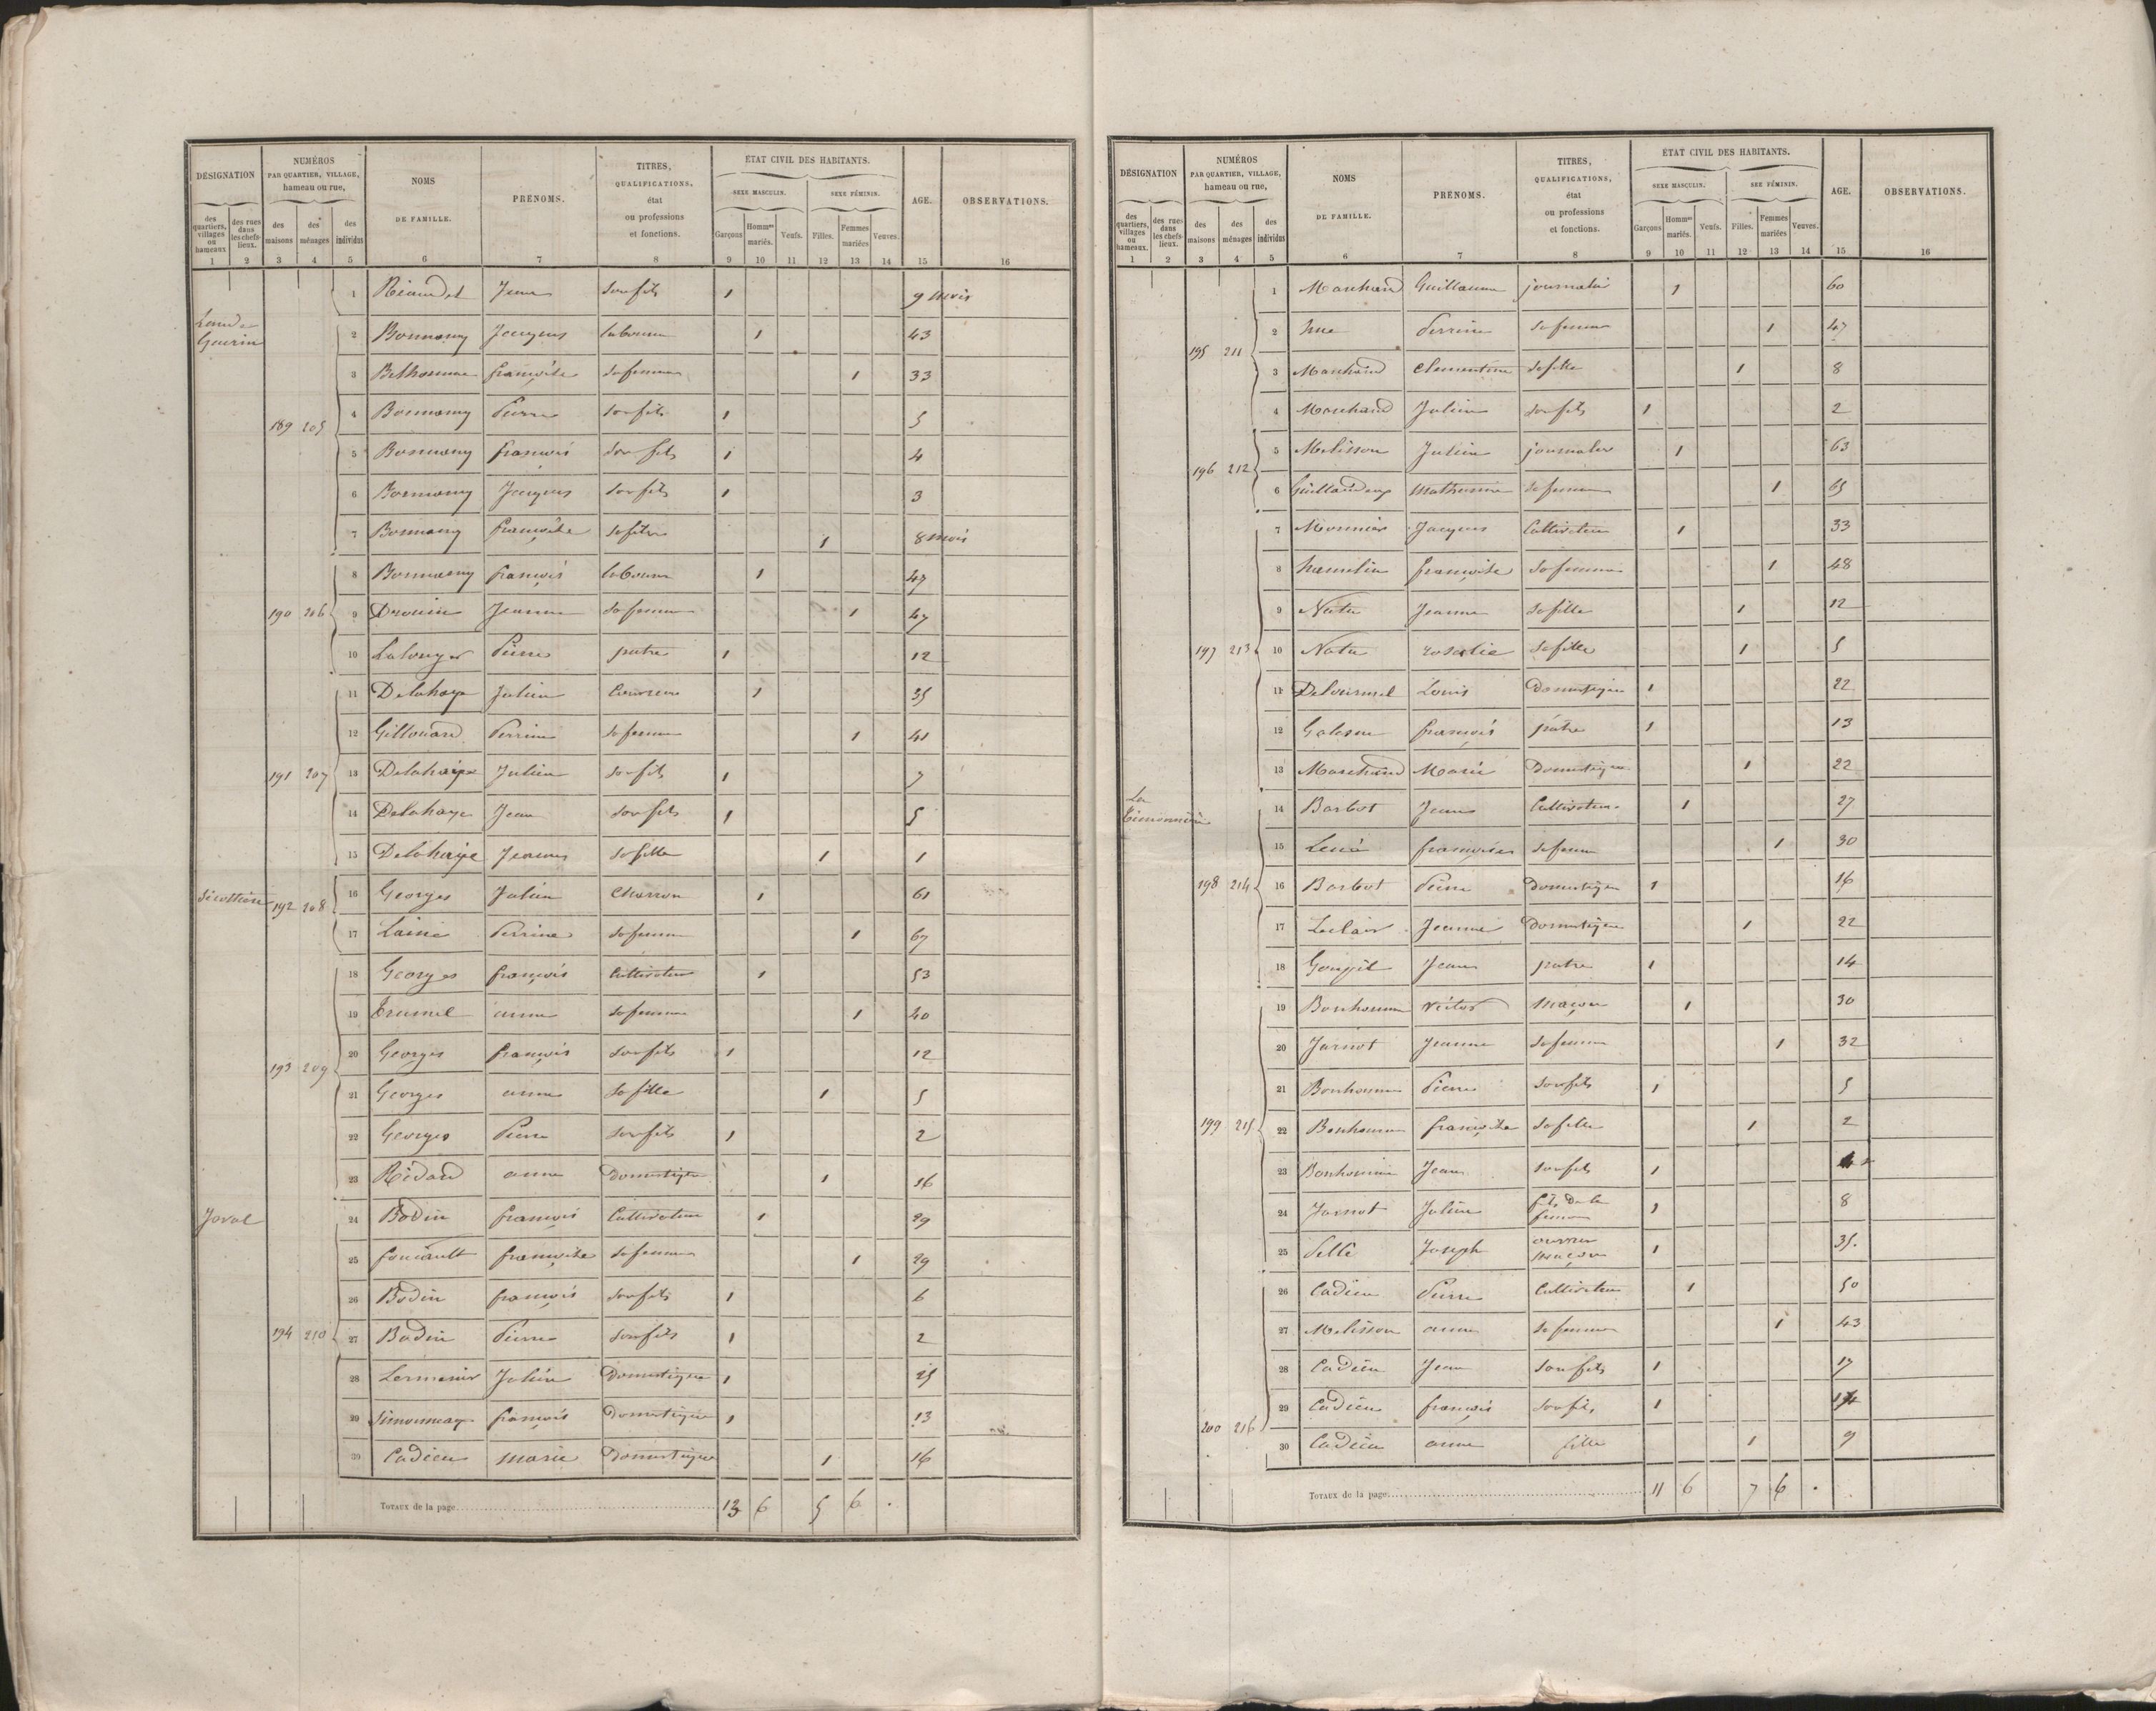 DÉSIGNATION NUMÉROS PAR QUARTIER, VILLAGE, hameau ou rue, NOMS DE FAMILLE. PRÉNOMS. TITRES, QUALIFICATIONS, état ou professions et fonctions. ÉTAT CIVIL DES HABITANTS. AGE. OBSERVATIONS.
SEXE MASCULIN. SEXE FÉMININ.
des quartiers, villages ou hameaux des rues dans les chefs-lieux. des maisons des ménages des individus Garçons Hommes mariés. Veufs. Filles. Femmes mariées Veuves.
1 2 3 4 5 6 7 8 9 10 11 12 13 14 15 16
1 Jean son fils 1 9 mois
Lande Guerin
2 Bonnamy Jacques laboureur 1 43
3 Bethomme françoise sa femme 1 33
189 205 4 Bonnamy Pierre son fils 1 5
5 Bonnamy françois son fils 1 4
6 Bonnamy Jacques son fils 1 3
7 Bonnamy françoise sa fille 1 8 mois
8 Bonnamy françois laboureur 1 47
190 206 9 Drouin Jeanne sa femme 1 47
10 Pierre patre 1 12
11 Delahaye Julien Couvreur 1 35
12 Gillouard Perrine sa femme 1 41
191 207 13 Delahaye Julien son fils 1 7
14 Delahaye Jean son fils 1 5
15 Delahaye Jeanne sa fille 1 1
192 208 16 Georges Julien Charron 1 61
17 Lainé Perrine sa femme 1 67
18 Georges françois Cultivateur 1 53
19 anne sa femme 1 40
193 209 20 Georges françois son fils 1 12
21 Georges anne sa fille 1 5
22 Georges Pierre son fils 1 2
23 Rédard anne Domestique 1 16
Javal
24 Bodin françois Cultivateur 1 29
25 françoise sa femme 1 29
26 Bodin françois son fils 1 6
194 210 27 Bodin Pierre son fils 1 2
28 Julien Domestique 1 25
29 Simonneaux françois Domestique 1 13
30 Cadieu Marie Domestique 1 16
TOTAUX de la page 13 6 5 6 .
DÉSIGNATION NUMÉROS PAR QUARTIER, VILLAGE, hameau ou rue, NOMS DE FAMILLE. PRÉNOMS. TITRES, QUALIFICATIONS, état ou professions et fonctions. ÉTAT CIVIL DES HABITANTS. AGE. OBSERVATIONS.
SEXE MASCULIN. SEE FÉMININ.
des quartiers, villages ou hameaux. des rues dans les chefs-lieux. des maisons des ménages des individus Garçons Hommes mariés. Veufs. Filles. Femmes mariées Veuves.
1 2 3 4 5 6 7 8 9 10 11 12 13 14 15 16
1 Marchand Guillaume journalier 1 60
2 hue Perrine sa femme 1 47
195 211 3 Marchand Clementine sa fille 1 8
4 Marchand Julien son fils 1 2
5 Melisson Julien journalier 1 63
196 212 6 Guillardeux Mathurine sa femme 1 65
7 Monnier Jacques Cultivateur 1 33
8 hamelin françoise sa femme 1 48
9 Natu Jeanne sa fille 1 12
197 213 10 Natu rosalie sa fille 1 5
11 Delourmel Louis Domestique 1 22
12 françois pâtre 1 13
13 Marchand Marie Domestique 1 22
La
14 Barbot Jean Cultivateur 1 27
15 françoise sa femme 1 30
198 214 16 Barbot Pierre Domestique 1 16
17 Leclair Jeanne Domestique 1 22
18 Goupil Jean patre 1 14
19 Bonhomme victor maçon 1 30
20 Jarnot Jeanne sa femme 1 32
21 Bonhomme Pierre son fils 1 5
199 215 22 Bonhomme françoise sa fille 1 2
23 Bonhomme Jean son fils 1
24 Jarnot Julien fils de la femme 1 8
25 Pellé Joseph ouvrier maçon 1 35.
26 Cadieu Pierre Cultivateur 1 50
27 Melisson anne sa femme 1 43
28 Cadieu Jean son fils 1 17
29 Cadieu françois son fils 1
200 216 30 Cadieu anne fille 1 9
TOTAUX de la page 11 6 7 6 .